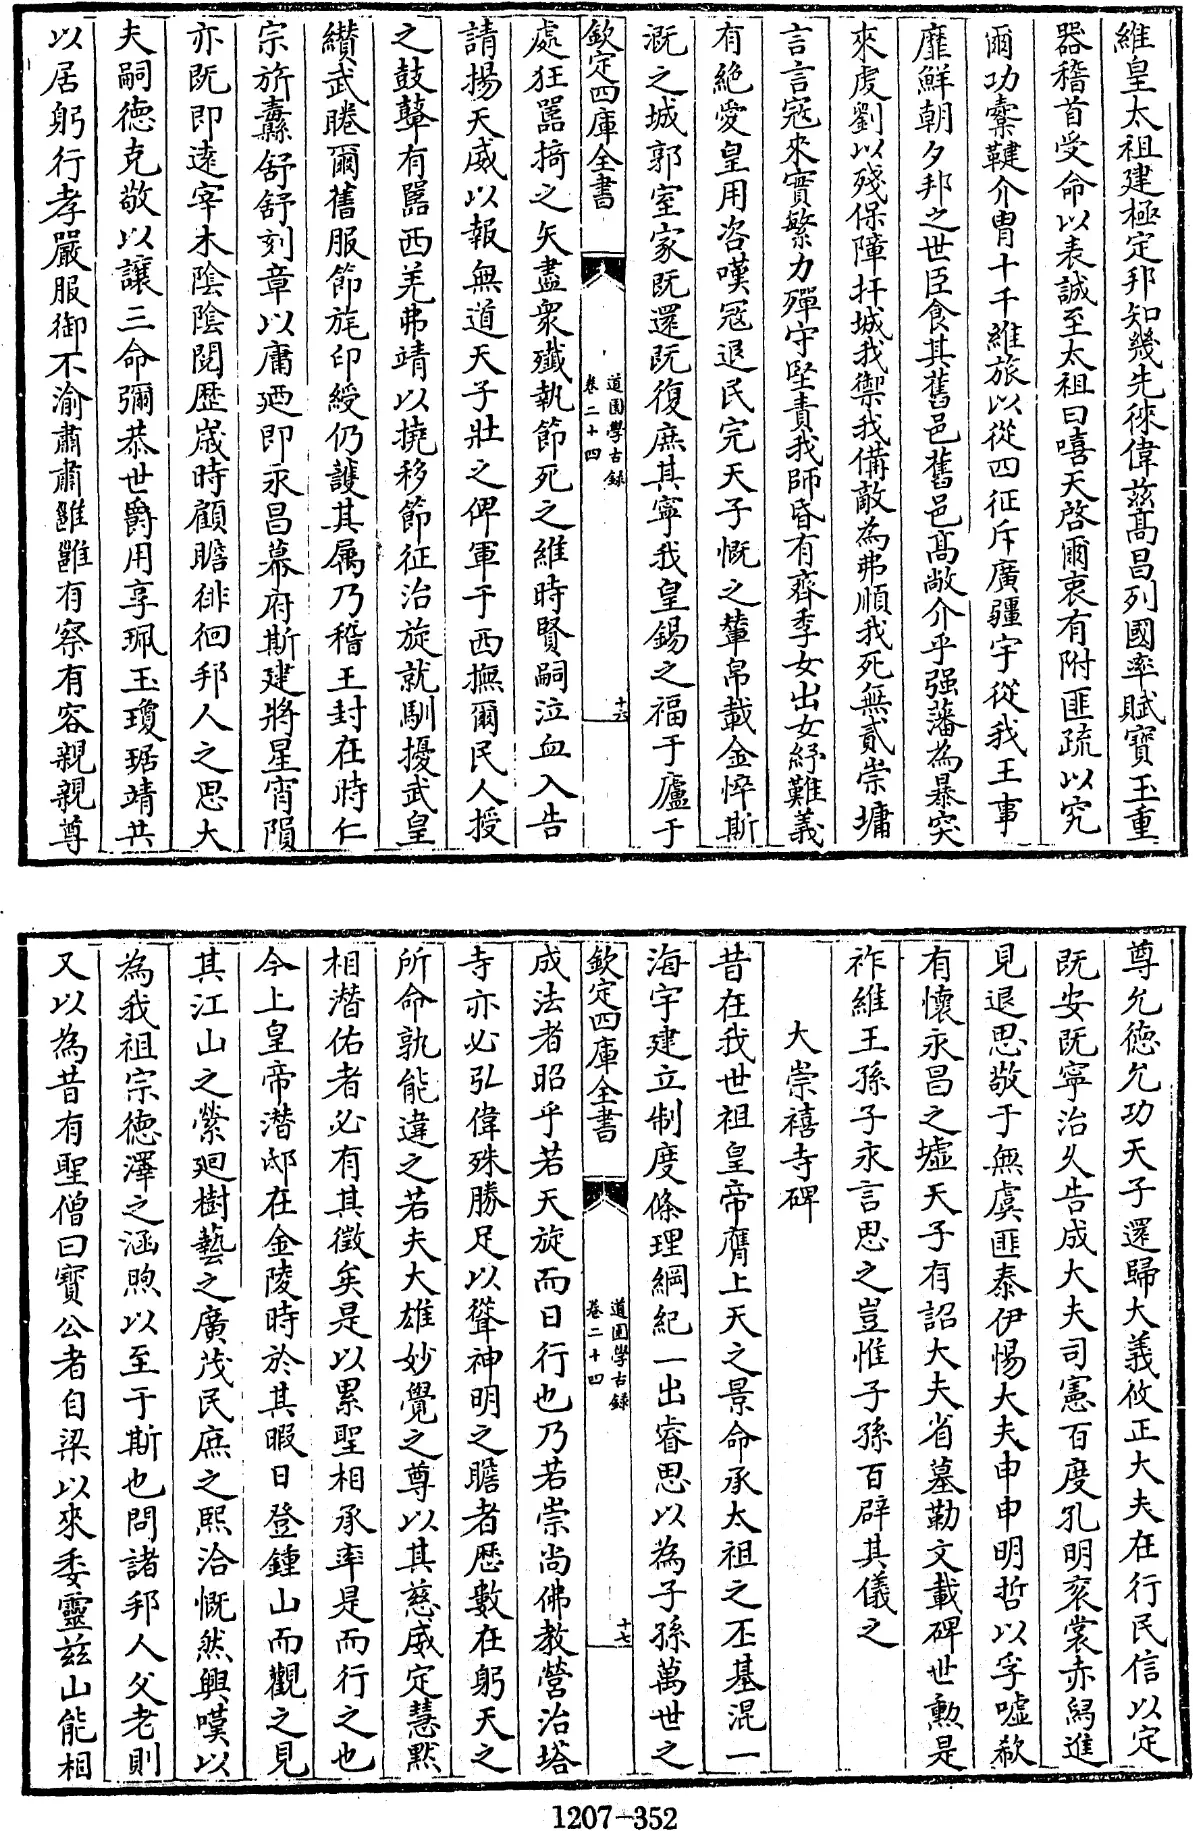 維皇太祖建極定邦知幾先徠偉兹髙昌列國率賦寳玉重
器稽首受命以表誠至太祖曰嘻天啓爾衷有附匪疏以究
爾功櫜鞬介胄十千維旅以從四征斥廣疆宇從我王事
靡鮮朝夕邦之世臣食其舊邑舊邑髙敞介乎强藩為暴突
來虔劉以殘保障扞城我禦我備敵為弗順我死無貳崇墉
言言冦來實繁力殫守堅責我師昏有齊季女出女紓難義
有絶愛皇用咨嘆冦退民完天子慨之輦帛載金悴斯
溉之城郭室家既還既復庶其寧我皇錫之福于廬于
欽定四庫全書
道園學古録
卷二十四
十六
處狂嚚掎之矢盡衆殲執節死之維時賢嗣泣血入告
請揚天威以報無道天子壯之俾軍于西撫爾民人授
之鼓鼙有嚚西羌弗靖以撓移節征治旋就馴擾武皇
纘武睠爾舊服節旄印綬仍護其属乃稽王封在時仁
宗旂纛舒舒刻章以庸廼即永昌幕府斯建將星宵隕
亦既即逺宰木陰陰閲歴嵗時顧瞻徘徊邦人之思大
夫嗣徳克敬以讓三命彌恭世爵用享珮玉瓊琚靖共
以居躬行孝嚴服御不渝肅肅雝雝有察有容親親尊
尊允徳允功天子還歸大義攸正大夫在行民信以定
既安既寧治乆告成大夫司憲百度孔明衮裳赤舄進
見退思敬于無虞匪泰伊惕大夫申申明哲以孚嘘欷
有懷永昌之墟天子有詔大夫省墓勒文載碑世勲是
祚維王孫子永言思之豈惟子孫百辟其儀之
大崇禧寺碑
昔在我世祖皇帝膺上天之景命承太祖之丕基混一
海宇建立制度條理綱紀一出睿思以為子孫萬世之
欽定四庫全書
道園學古録
卷二十四
十七
成法者昭乎若天旋而日行也乃若崇尚佛教營治塔
寺亦必弘偉殊勝足以聳神明之瞻者歴數在躬天之
所命孰能違之若夫大雄妙覺之尊以其慈威定慧黙
相潛佑者必有其徵矣是以累聖相承率是而行之也
今上皇帝潛邸在金陵時於其暇日登鍾山而觀之見
其江山之縈廻樹藝之廣茂民庶之熙洽慨然興嘆以
為我祖宗徳澤之涵煦以至于斯也問諸邦人父老則
又以為昔有聖僧曰寳公者自梁以來委靈兹山能相
1207-352